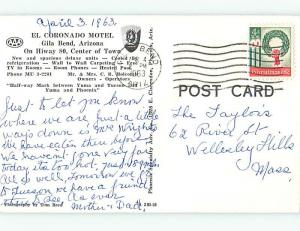 April 3. 1963.
EL CORONADO MOTEL
Gila Bend, Arizona
On Hiway 80, Center of Town
New and spacious deluxe units - Coaxial
refrigeration - Wall to Wall Carpeting -
TV in Rooms - Room Phones - Heated Pool
Phone MU 3-2281 Mr. & Mrs. C. R. Holcomb
Owners
"Half-way Mark between Yuma and Tucson
Yuma and Phoenix"
Just to let you know
where we are just a little
ways down is Mr Wrights
We have eaten there before
we haven't gone very far
today its too hot, just 18 miles
All so well, Tomorrow we
to Tucson we have a friend
there to see. As ever
Mother & Dad.
Photography by Don Reed
Christmas 1962
POST CARD
The Taylors
62 River St
Wellesley Hills
Mass